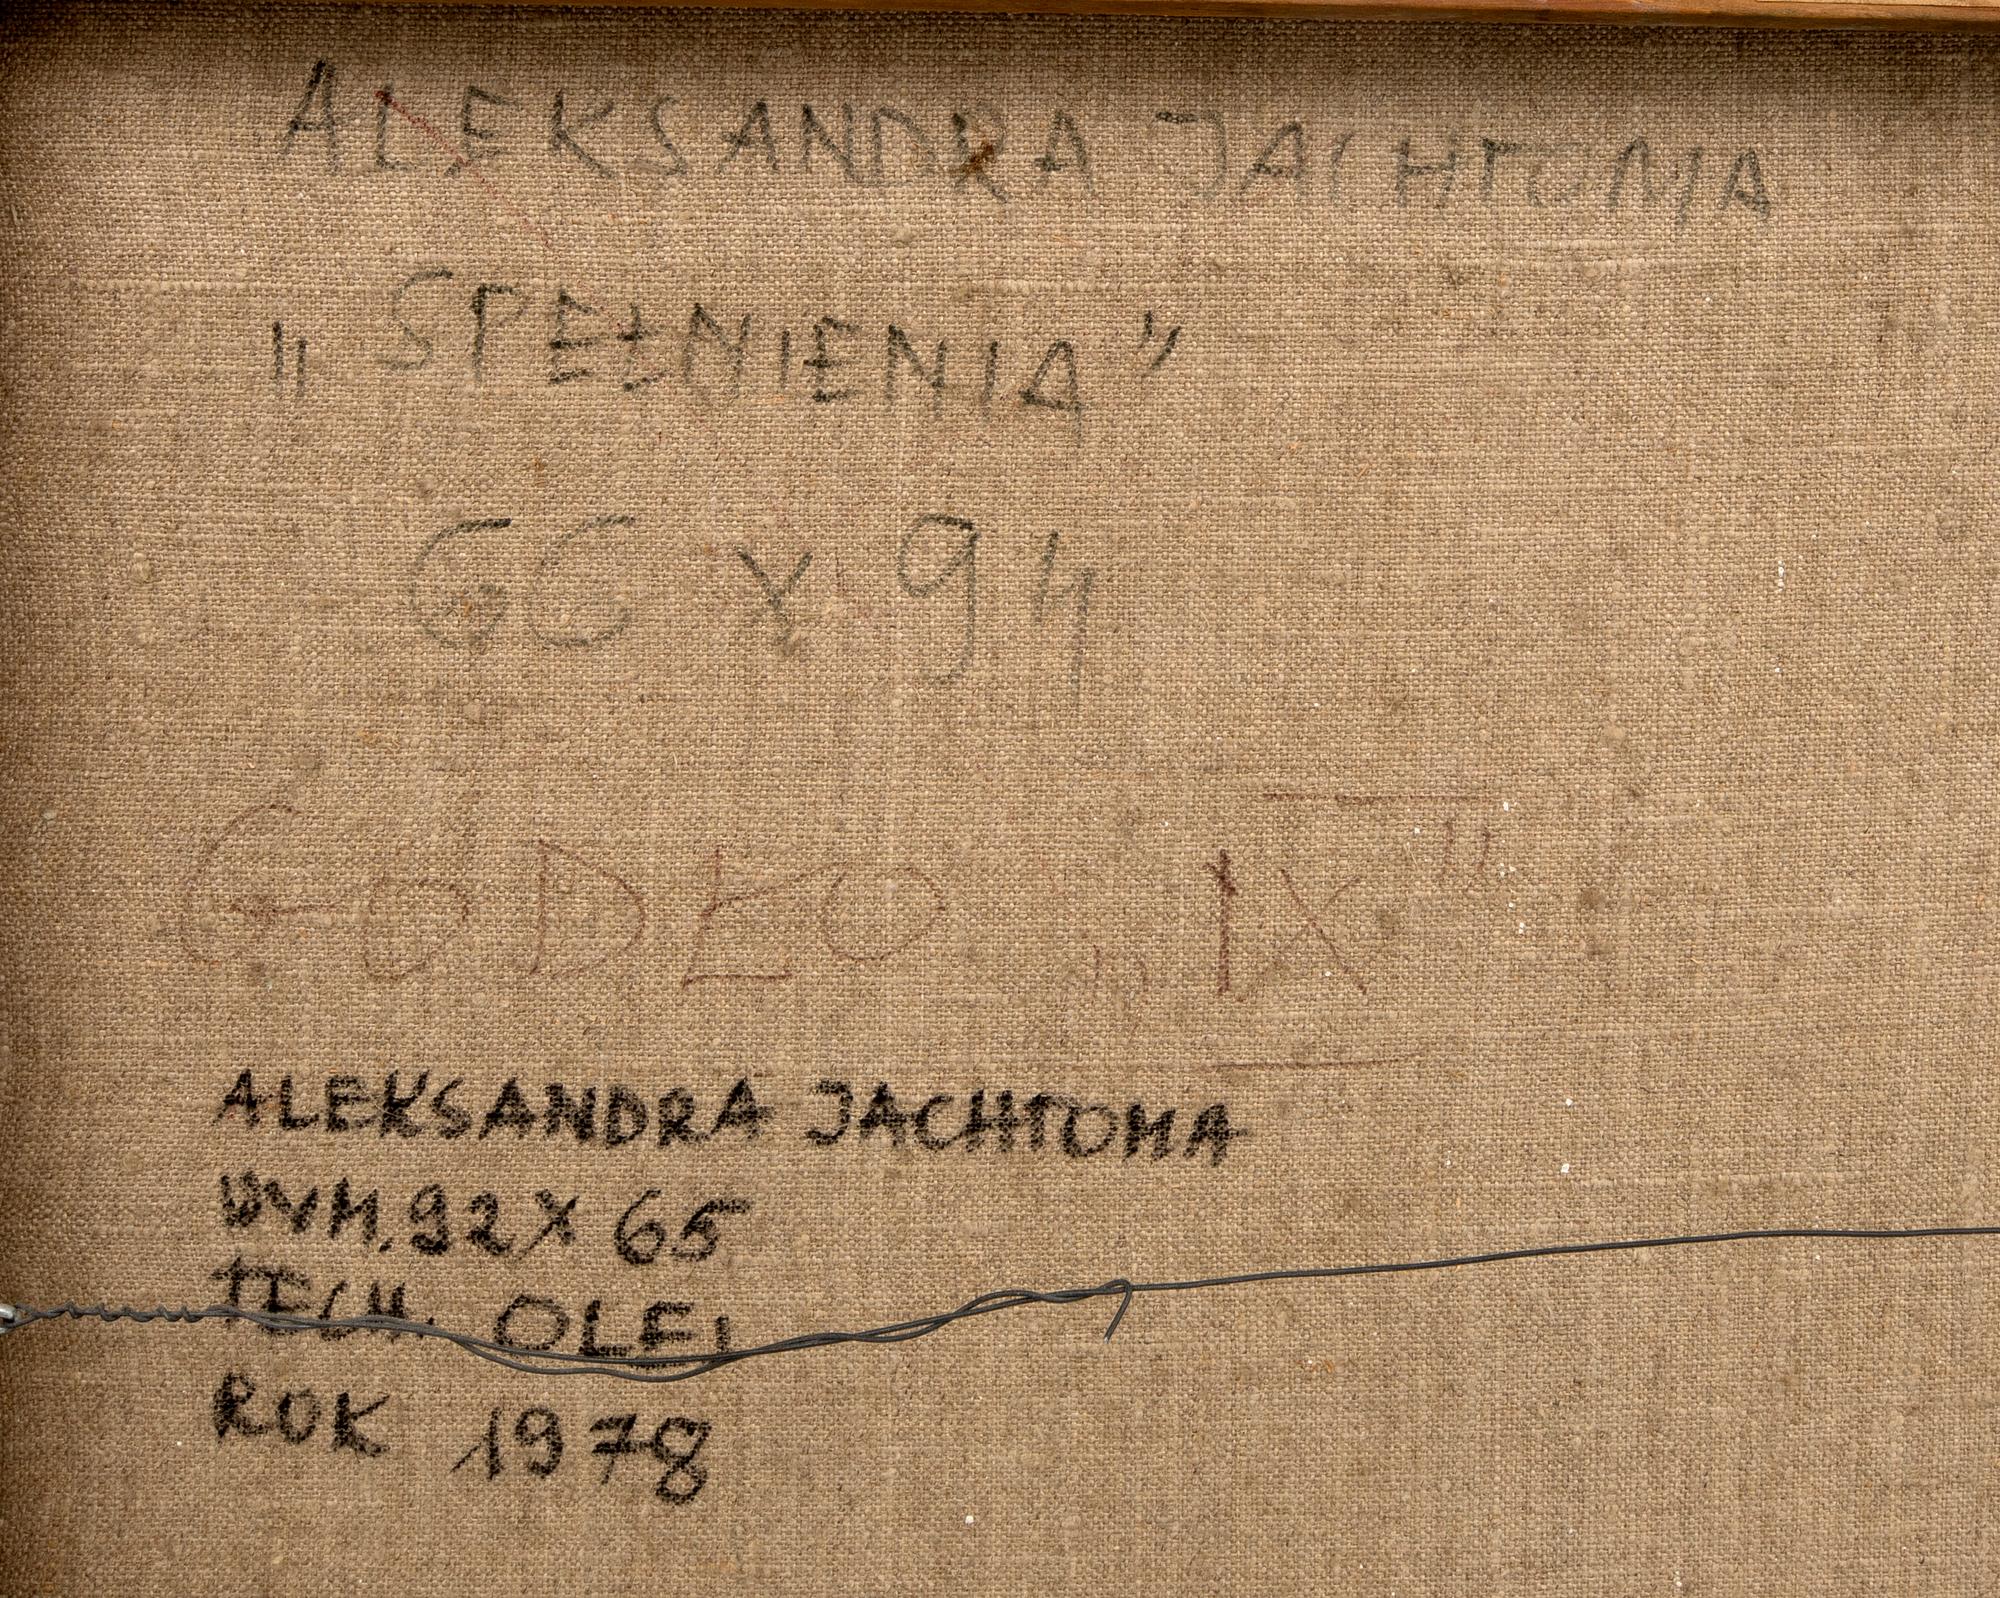 ALEKSANDRA JACHTOMA
„SPEŁNIENIA”
66 x 94
GODŁO „IX”
ALEKSANDRA JACHTOMA
WYM. 92 X 65
TECH. OLEJ
ROK 1978